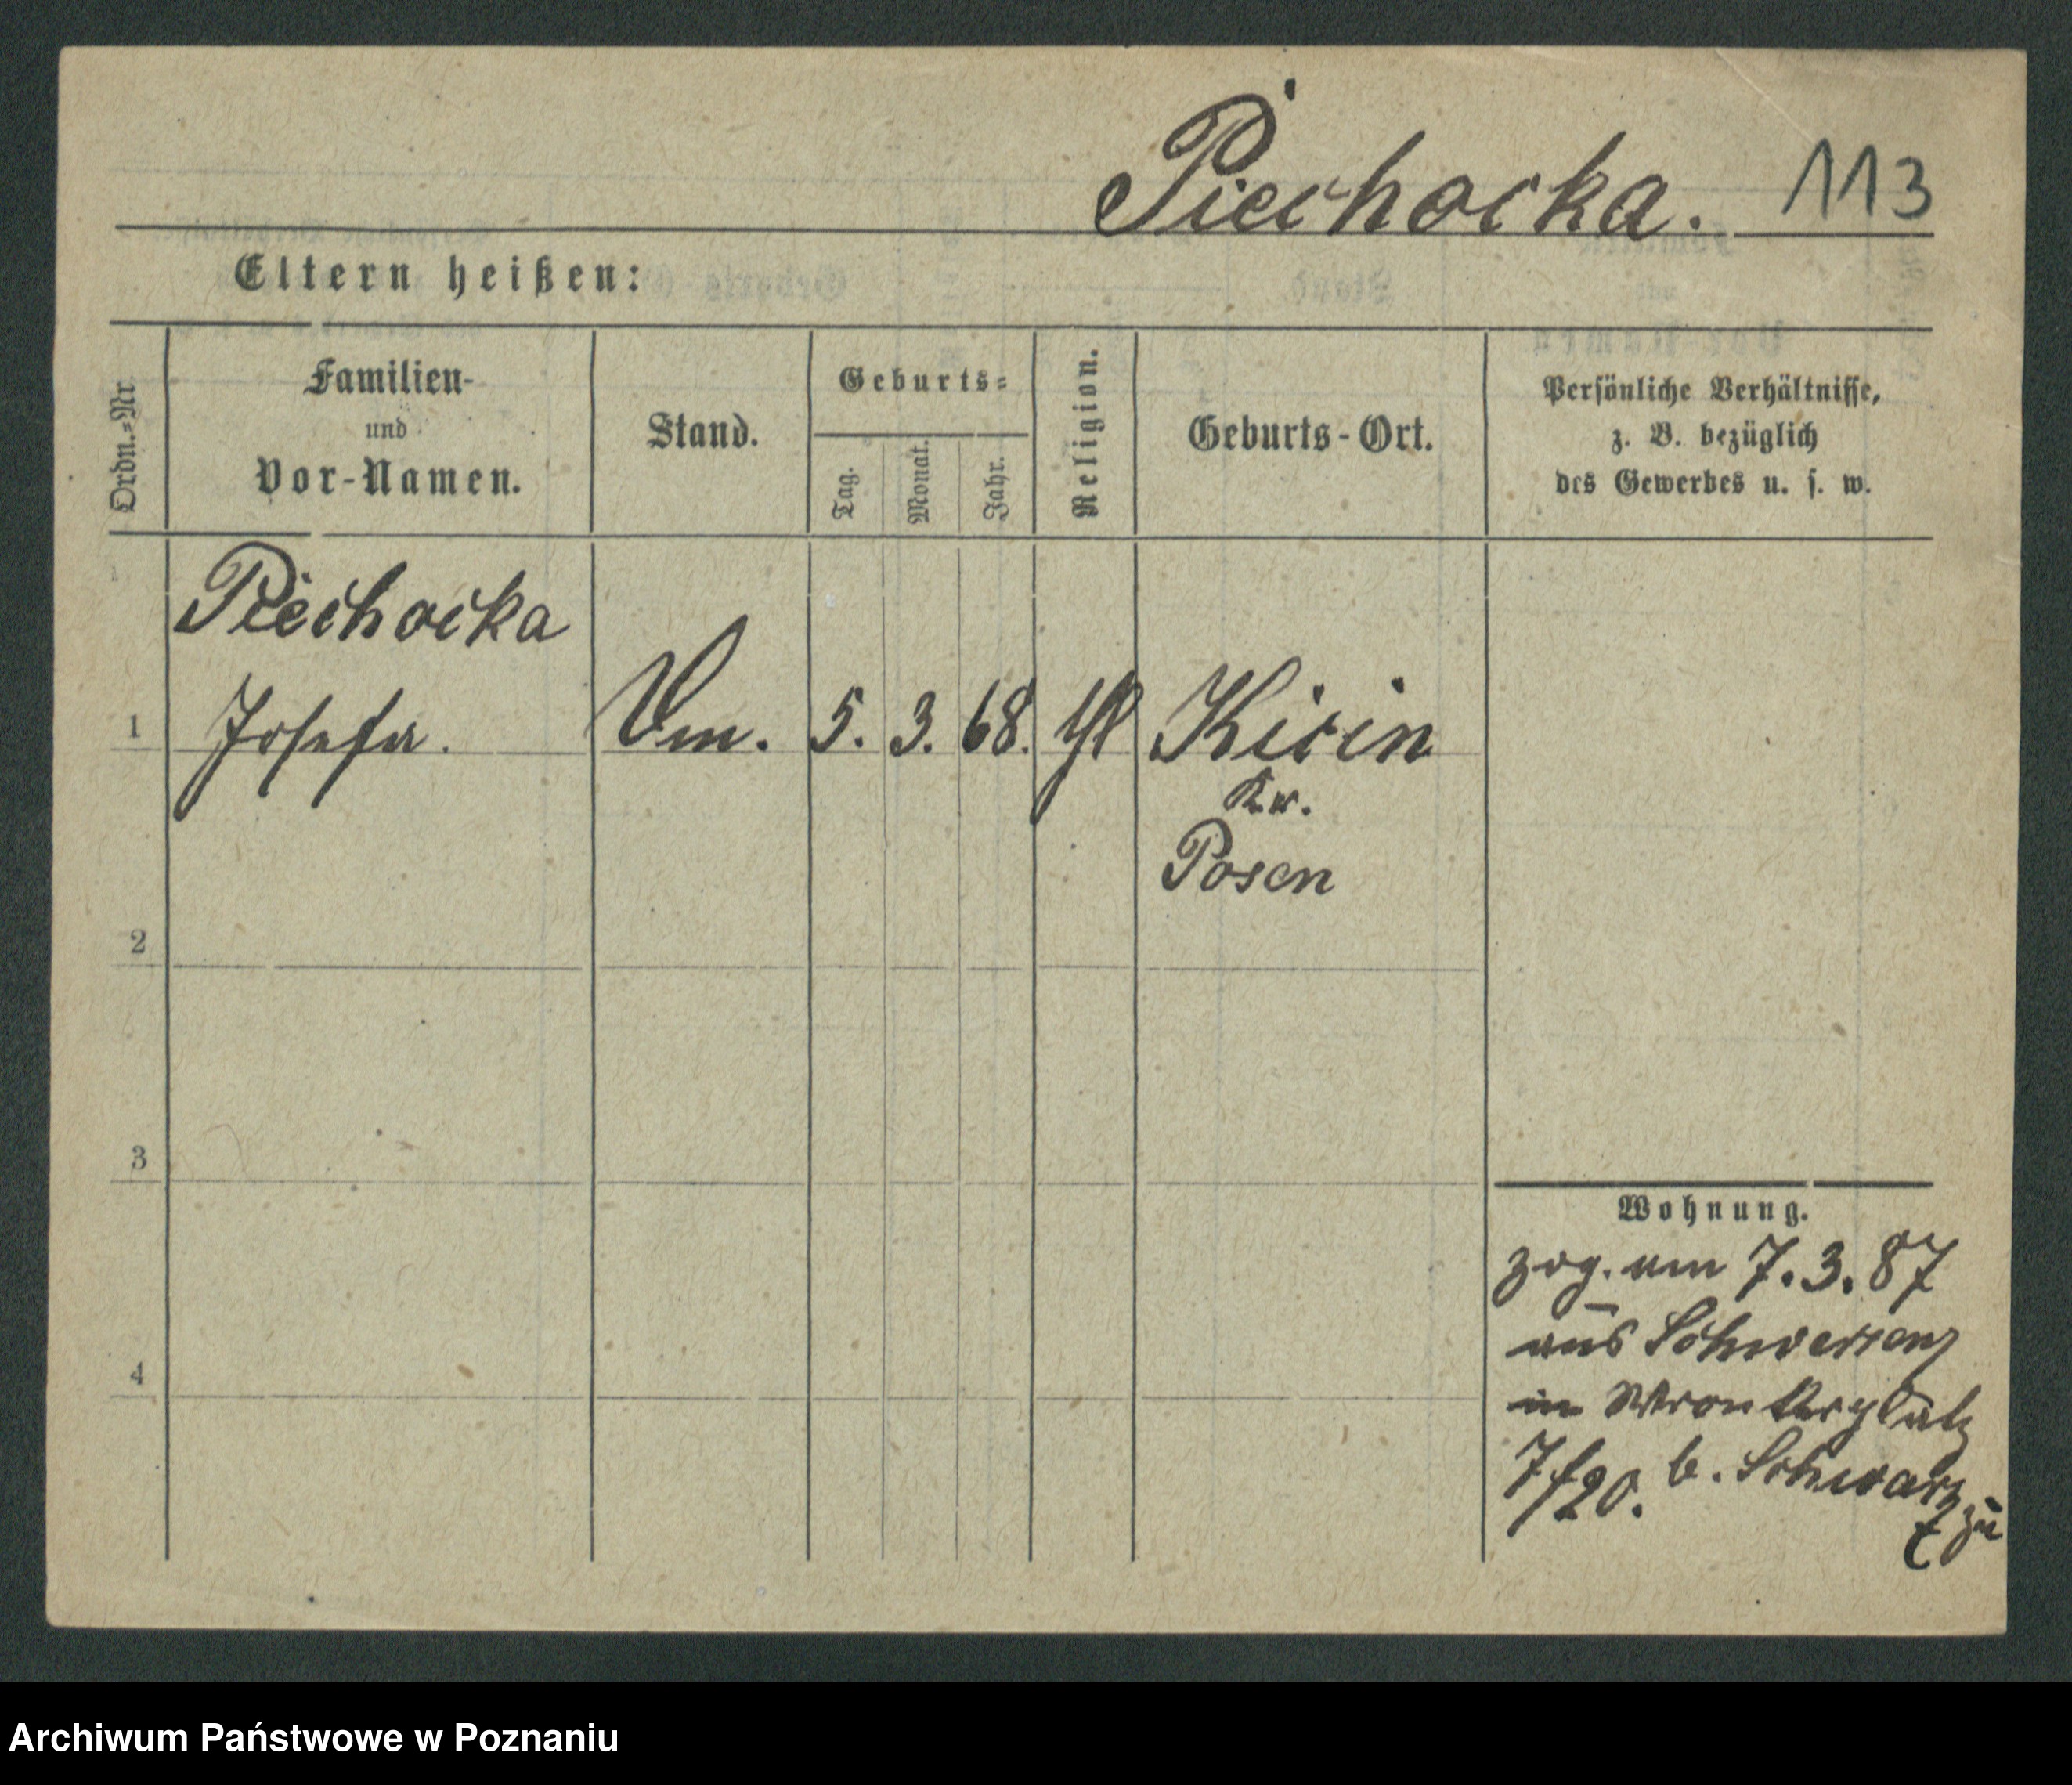 Piechocka. 113
Eltern heißen:
Ordn.=Nr.
Familien-
und
Vor-Namen.
Stand.
Geburts=
Tag.
Monat.
Jahr.
Religion.
Geburts-Ort.
Persönliche Verhältnisse,
z. B. bezüglich
des Gewerbes u. s. w.
Piechocka
1 Josefa. 5. 3. 68. Kicin
Kr.
Posen
2
3
4
Wohnung.
zog. am 7.3.87
aus Schwersenz
in Wronkerplatz
7/20. b. Schwarz
zu
Archiwum Państwowe w Poznaniu